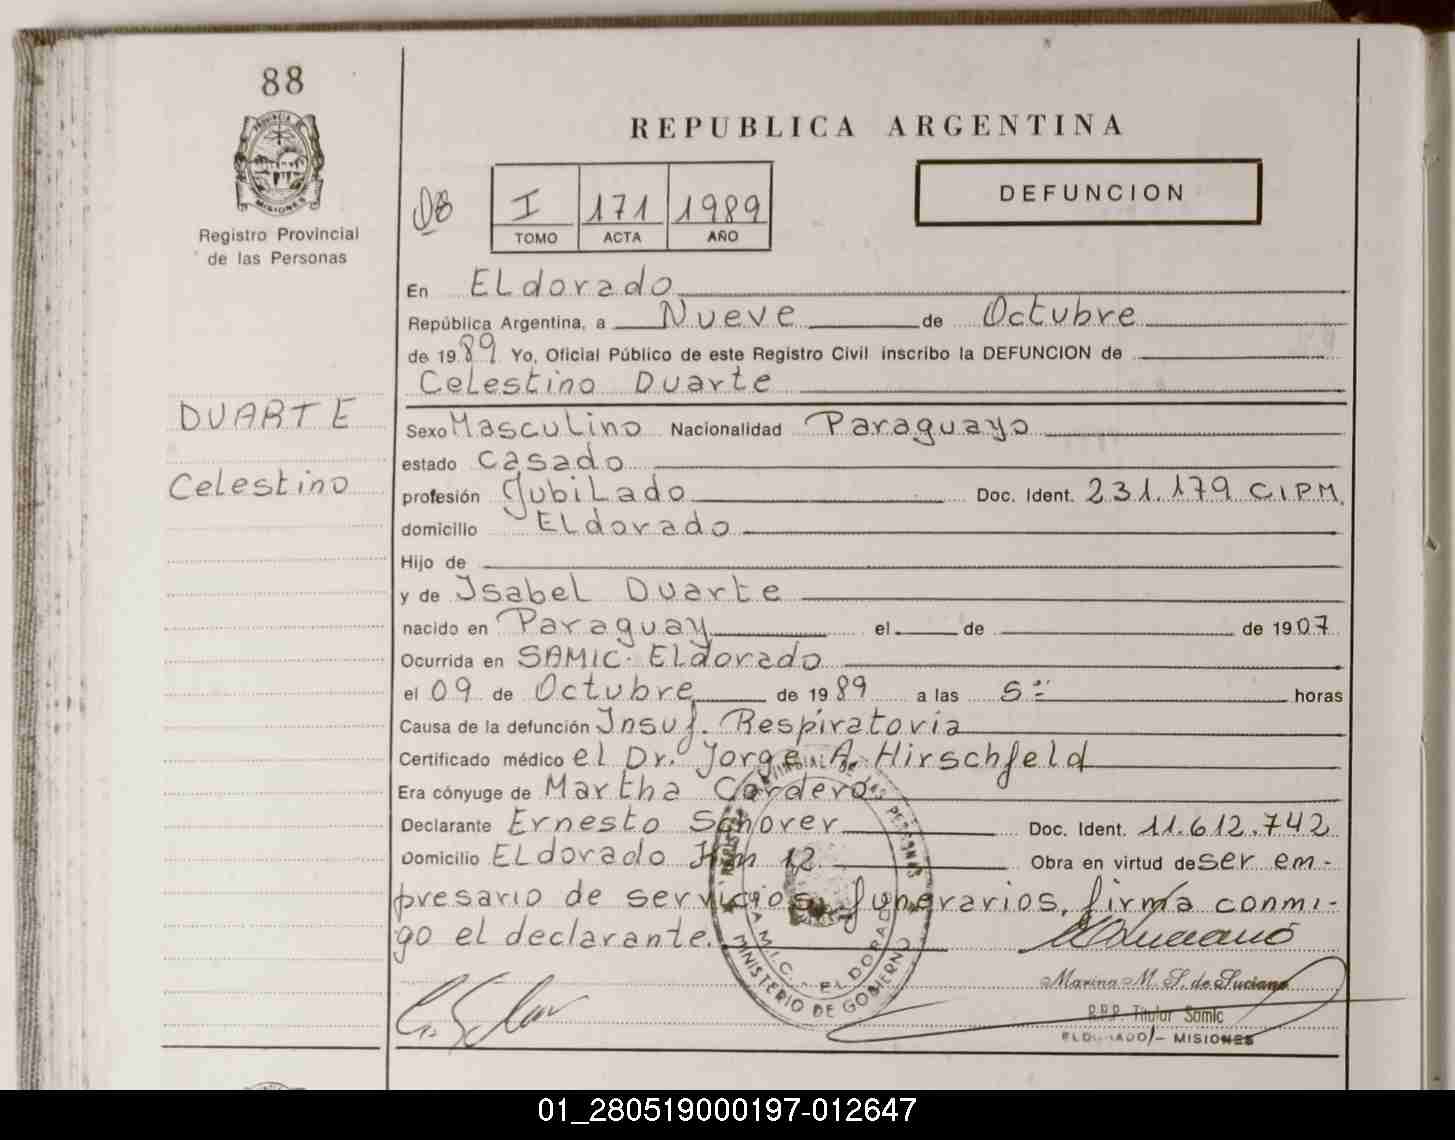 88
PROVINCIA DE
MISIONES
Registro Provincial
de las Personas
REPUBLICA ARGENTINA
DEFUNCION
I 171 1989
TOMO ACTA AÑO
En ELdorado
República Argentina, a Nueve de Octubre
de 1989 Yo, Oficial Público de este Registro Civil inscribo la DEFUNCION de
Celestino Duarte
DUARTE
Celestino
Sexo Masculino Nacionalidad Paraguayo
estado Casado
profesión JubiLado Doc. Ident. 231.179 C.I.P.M.
domicilio ELdorado
Hijo de
y de Isabel Duarte
nacido en Paraguay el de de 1907
Ocurrida en SAMIC. ELdorado
el 09 de Octubre de 1989 a las 5 horas
Causa de la defunción Insuf. Respiratoria
Certificado médico el Dr. Jorge A. Hirschfeld
Era cónyuge de Martha Cordero
Declarante Ernesto Schorer Doc. Ident. 11.612.742
Domicilio ELdorado Km 12 Obra en virtud de ser em-
presario de servicios funerarios, firma conmi-
go el declarante.
S.A.M.I.C. - ELDORADO
MINISTERIO DE GOBIERNO
Marina M. S. de Luciano
R.P.P. Titular Samic
ELDORADO - MISIONES
01_280519000197-012647